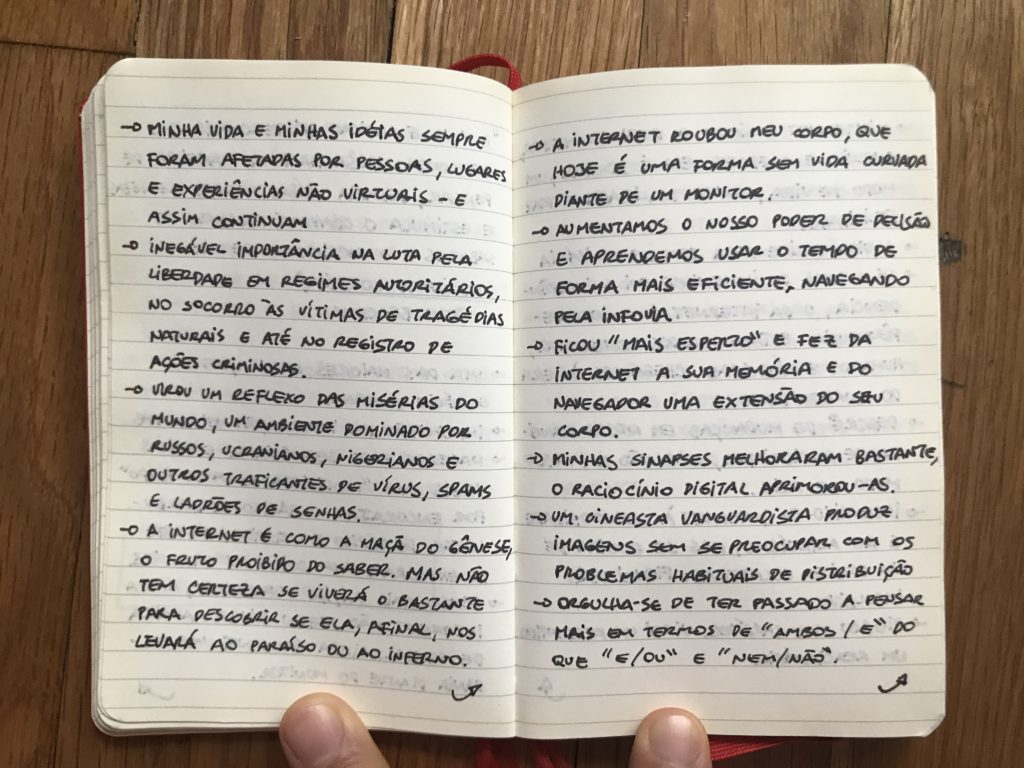 → MINHA VIDA E MINHAS IDÉIAS SEMPRE
FORAM AFETADAS POR PESSOAS, LUGARES
E EXPERIÊNCIAS NÃO VIRTUAIS - E
ASSIM CONTINUAM
→ INEGÁVEL IMPORTÂNCIA NA LUTA PELA
LIBERDADE EM REGIMES AUTORITÁRIOS,
NO SOCORRO ÀS VÍTIMAS DE TRAGÉDIAS
NATURAIS E ATÉ NO REGISTRO DE
AÇÕES CRIMINOSAS.
→ VIROU UM REFLEXO DAS MISÉRIAS DO
MUNDO, UM AMBIENTE DOMINADO POR
RUSSOS, UCRANIANOS, NIGERIANOS E
OUTROS TRAFICANTES DE VÍRUS, SPAMS
E LADRÕES DE SENHAS.
→ A INTERNET É COMO A MAÇÃ DO GÊNESE,
O FRUTO PROIBIDO DO SABER. MAS NÃO
TEM CERTEZA SE VIVERÁ O BASTANTE
PARA DESCOBRIR SE ELA, AFINAL, NOS
LEVARÁ AO PARAÍSO OU AO INFERNO.
→ A INTERNET ROUBOU MEU CORPO, QUE
HOJE É UMA FORMA SEM VIDA CURVADA
DIANTE DE UM MONITOR.
→ AUMENTAMOS O NOSSO PODER DE DECISÃO
E APRENDEMOS USAR O TEMPO DE
FORMA MAIS EFICIENTE, NAVEGANDO
PELA INFOVIA.
→ FICOU "MAIS ESPERTO" E FEZ DA
INTERNET A SUA MEMÓRIA E DO
NAVEGADOR UMA EXTENSÃO DO SEU
CORPO.
→ MINHAS SINAPSES MELHORARAM BASTANTE,
O RACIOCÍNIO DIGITAL APRIMOROU-AS.
→ UM CINEASTA VANGUARDISTA PRODUZ
IMAGENS SEM SE PREOCUPAR COM OS
PROBLEMAS HABITUAIS DE DISTRIBUIÇÃO
→ ORGULHA-SE DE TER PASSADO A PENSAR
MAIS EM TERMOS DE "AMBOS/E" DO
QUE "E/OU" E "NEM/NÃO".